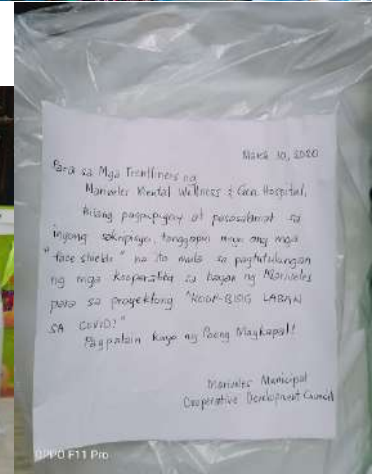 March 30, 2020
Para sa Mga Frontliners ng
Mariveles Mental Wellness & Gen. Hospital,
Bilang pagpupugay at pasasalamat sa
inyong sakripisyo, tanggapin ninyo ang mga
"face shields" na ito mula sa pagtutulungan
ng mga Kooperatiba sa bayan ng Mariveles
para sa proyektong "KOOP-BISIG LABAN
SA COVID!"
Pagpalain kayo ng Poong Maykapal!
Mariveles Municipal
Cooperative Development Council
OPPO F11 Pro